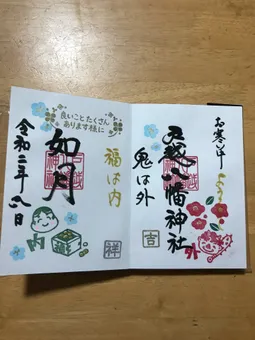 お寒い中
戸越八幡神社
鬼は外
外
吉
良いことたくさん
あります様に
福は内
如月
令和二年八日
内
祥